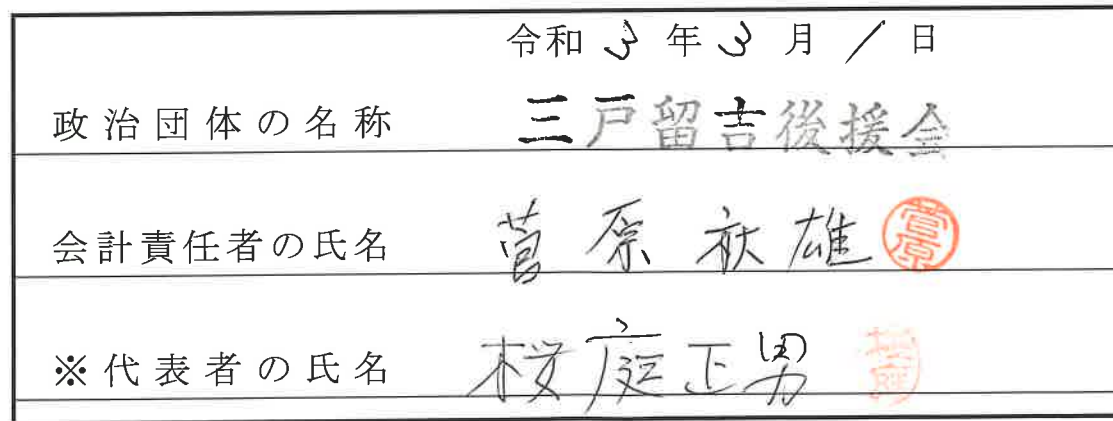 令和3年3月1日
政治団体の名称 三戸留吉後援会
会計責任者の氏名 菅原秋雄 菅原
※代表者の氏名 桜庭正男 桜庭